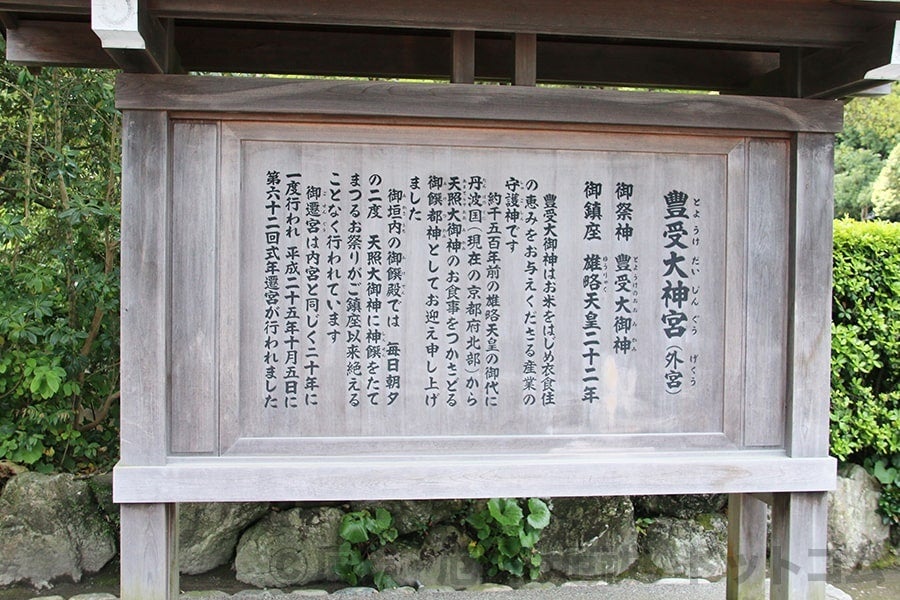 豊受大神宮(外宮)
とようけだいじんぐう げくう
御祭神 豊受大御神
とようけのおおみかみ
御鎮座 雄略天皇二十二年
ゆうりゃく
豊受大御神はお米をはじめ衣食住
の恵みをお与えくださる産業の
守護神です
約千五百年前の雄略天皇の御代に
丹波国(現在の京都府北部)から
天照大御神のお食事をつかさどる
御饌都神としてお迎え申し上げ
ました
御垣内の御饌殿では 毎日朝夕
の二度 天照大御神に神饌をたて
まつるお祭りがご鎮座以来絶える
ことなく行われています
御遷宮は内宮と同じく二十年に
一度行われ 平成二十五年十月五日に
第六十二回式年遷宮が行われました